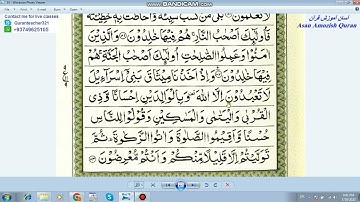 31 - Windows Photo Viewer
BANDICAM.COM
Contact me for live classes
Quranteacher321
+93749625105
آسان آموزش قرآن
Asan Amozish Quran
تَعْلَمُوْنَ بَلٰى مَنْ كَسَبَ سَيِّئَةً وَّاَحَاطَتْ بِهٖ خَطِيْٓـئَتُهٗ
فَاُولٰٓئِكَ اَصْحٰبُ النَّارِ هُمْ فِيْهَا خٰلِدُوْنَ وَالَّذِيْنَ
اٰمَنُوْا وَعَمِلُوا الصّٰلِحٰتِ اُولٰٓئِكَ اَصْحٰبُ الْجَنَّةِ هُمْ
فِيْهَا خٰلِدُوْنَ وَاِذْ اَخَذْنَا مِيْثَاقَ بَنِيْٓ اِسْرَآءِيْلَ
لَا تَعْبُدُوْنَ اِلَّا اللّٰهَ وَبِالْوَالِدَيْنِ اِحْسَانًا وَّذِي
الْقُرْبٰى وَالْيَتٰمٰى وَالْمَسٰكِيْنِ وَقُوْلُوْا لِلنَّاسِ
حُسْنًا وَّاَقِيْمُوا الصَّلٰوةَ وَاٰتُوا الزَّكٰوةَ ثُمَّ
تَوَلَّيْتُمْ اِلَّا قَلِيْلًا مِّنْكُمْ وَاَنْتُمْ مُّعْرِضُوْنَ